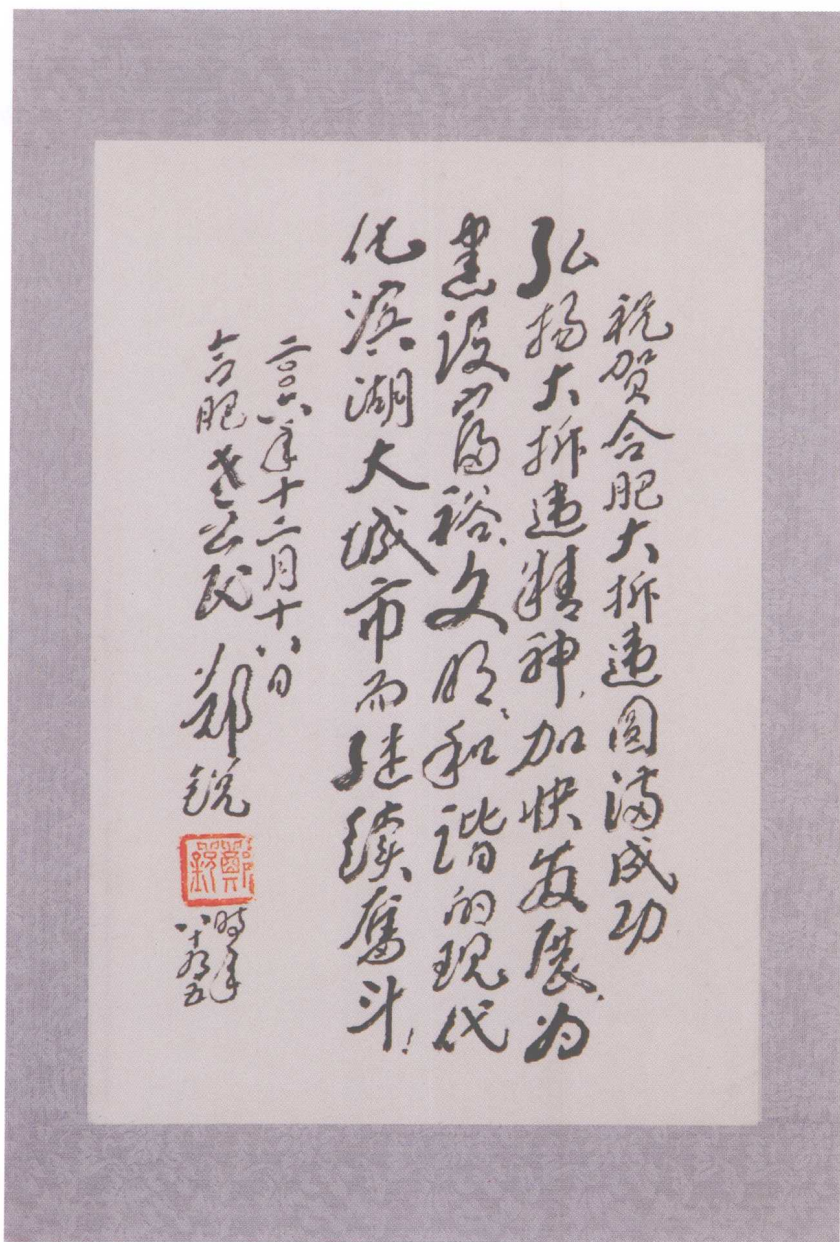 祝贺合肥大拆违圆满成功
弘扬大拆违精神,加快发展,为
建设富裕、文明、和谐的现代
化滨湖大城市而继续奋斗!
二〇〇六年十二月十八日
合肥老公民 郑锐
鄭銳
時年
八十有五